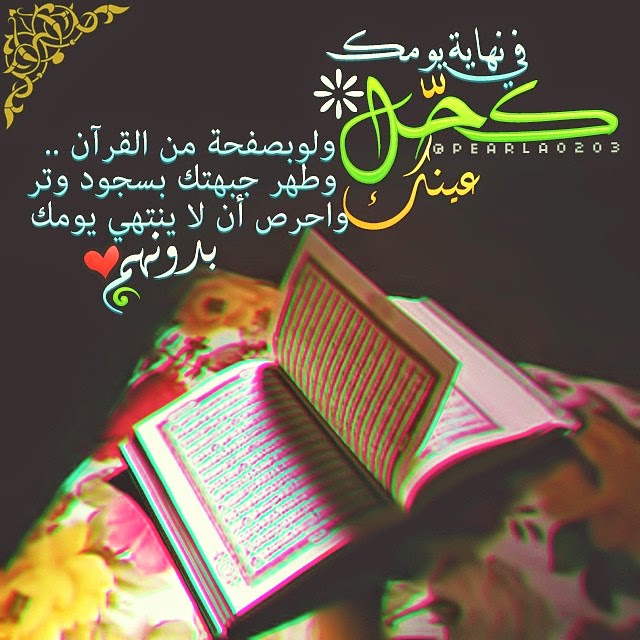 في نهاية يومك
كحّل
عينك
@PEARLA0203
ولوبصفحة من القرآن ..
وطهر جبهتك بسجود وتر
واحرص أن لا ينتهي يومك
بدونهم